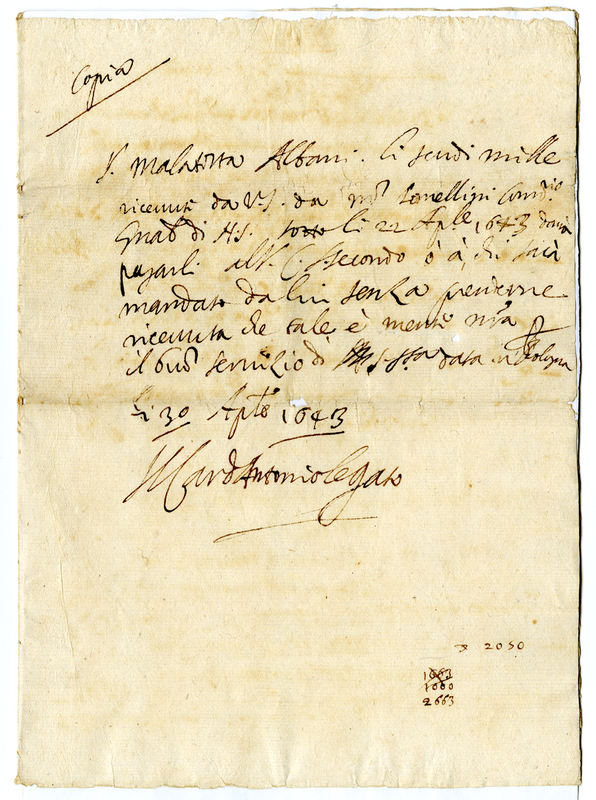 Copia
S. Malatesta Albani. li scudi mille
ricevuti da V.S. da mo.
di N.S. li 22 Aple 1643 darà
pagarli al S. C. secondo ò à chi sarà
mandato da lui senza prenderne
ricevuta che tale è mente nra
il buo servizio di S. Sta data in Bologna
li 30 Aple 1643
Il Card Antonio legato
2050
1663
1000
2663